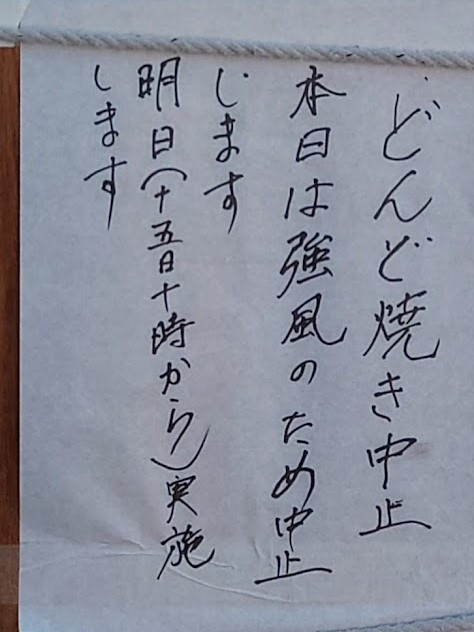 どんど焼き中止
本日は強風のため中止
します
明日(十五日十時から)実施
します